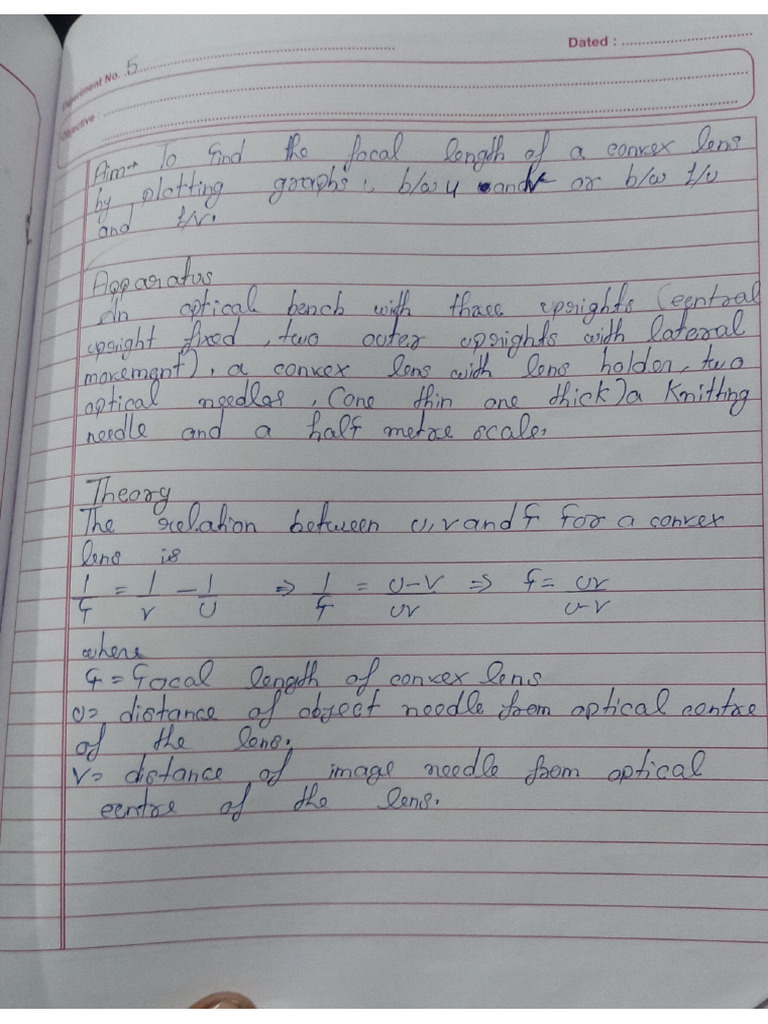 Dated :
Experiment No. 5
Objective :
Aim→ To find the focal length of a convex lens
by plotting graphs, b/w u and v or b/w 1/u
and 1/v.
Apparatus
An optical bench with three uprights (central
upright fixed, two outer uprights with lateral
movement), a convex lens with lens holder, two
optical needles, (one thin one thick) a Knitting
needle and a half metre scale.
Theory
The relation between u, v and f for a convex
lens is
1/f = 1/v - 1/u ⇒ 1/f = u-v/uv ⇒ f = uv/u-v
where
f = focal length of convex lens
u = distance of object needle from optical centre
of the lens.
v = distance of image needle from optical
centre of the lens.